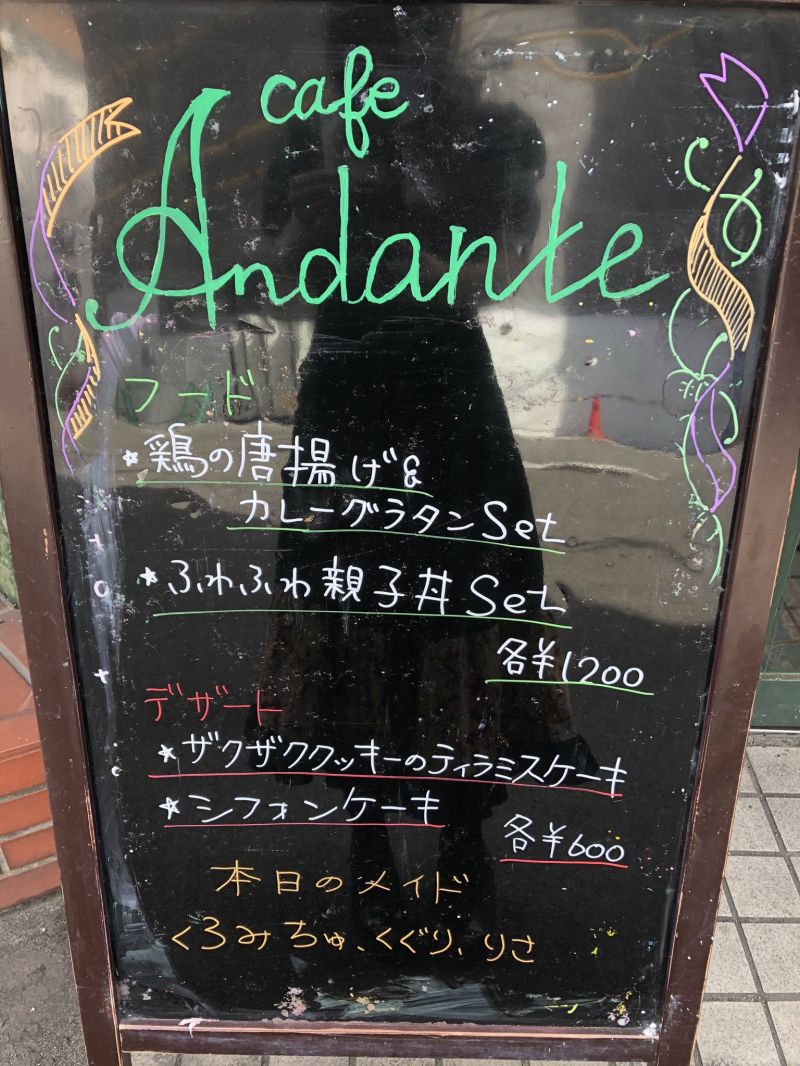 cafe
Andante
フード
★鶏の唐揚げ&
カレーグラタンSet
★ふわふわ親子丼Set
各¥1200
デザート
★ザクザククッキーのティラミスケーキ
★シフォンケーキ
各¥600
本日のメイド
くろみちゅ、くぐり、りさ